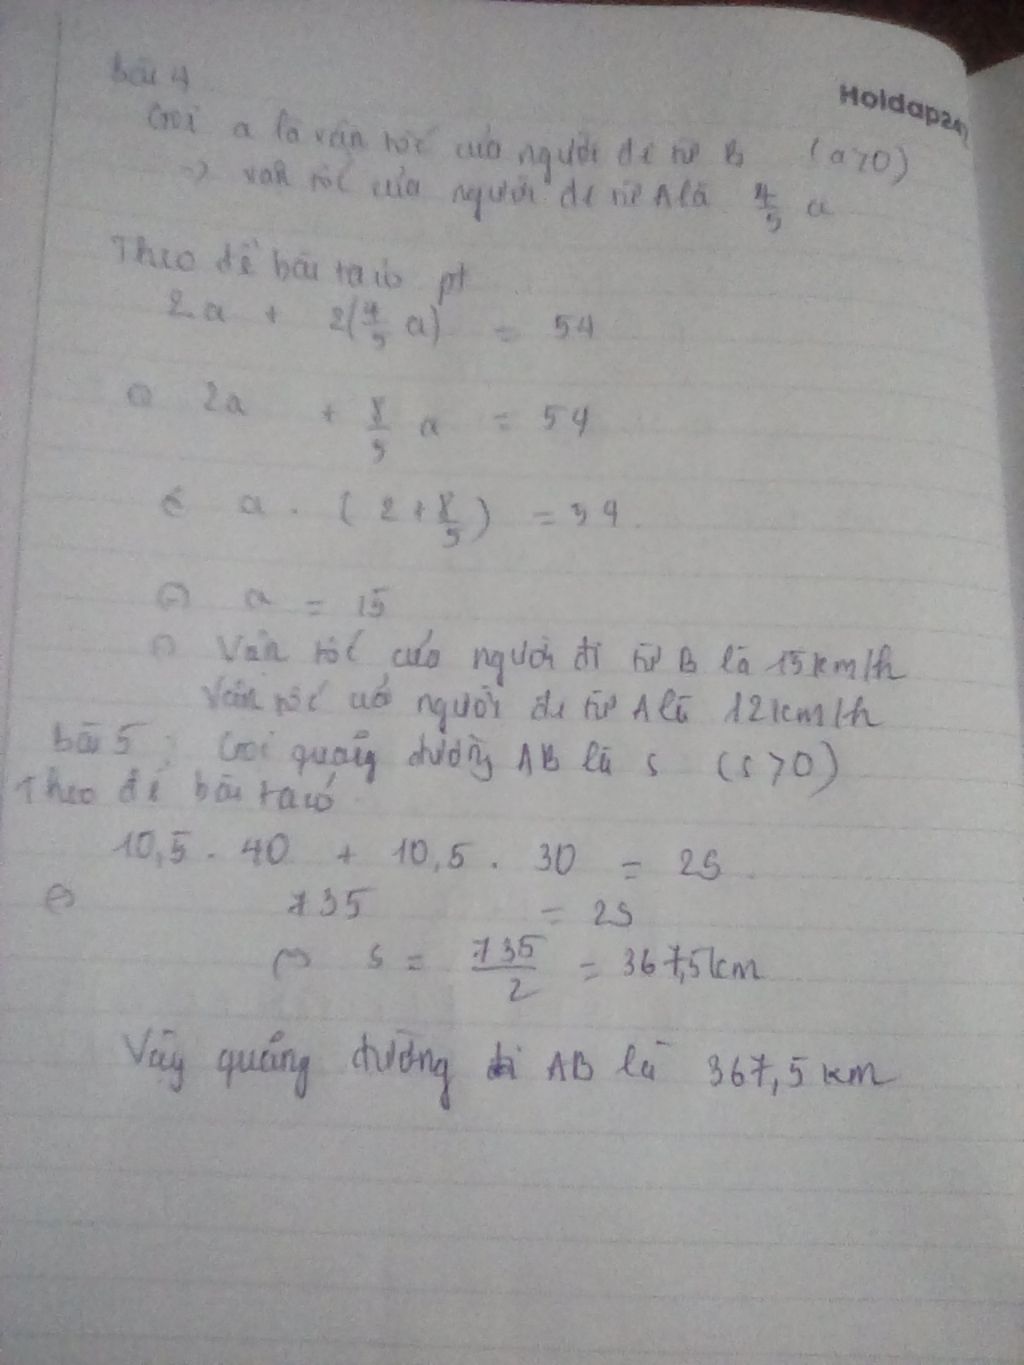 Bài 4
Hoidap247
Gọi a là vận tốc của người đi từ B (a>0)
=> vận tốc của người đi từ A là 4/5 a
Theo đề bài ta có pt
2a + 2(4/5 a) = 54
<=> 2a + 8/5 a = 54
<=> a . (2 + 8/5) = 54
<=> a = 15
=> Vận tốc của người đi từ B là 15km/h
Vận tốc của người đi từ A là 12km/h
Bài 5 : Gọi quãng đường AB là s (s>0)
Theo đề bài ta có
10,5 . 40 + 10,5 . 30 = 2s
<=> 735 = 2s
<=> s = 735/2 = 367,5km
Vậy quãng đường đi AB là 367,5 km